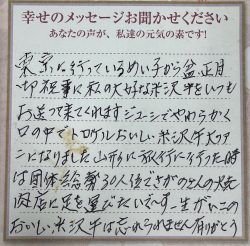 幸せのメッセージお聞かせください
あなたの声が、私達の元気の素です!
東京に行っているめい子から盆、正月
切 祝事に私の大好な米沢牛をいつも
お送って来てくれますジューシでやわらかく
口の中でトロけるおいしい米沢牛大ファ
ンになりました山形に旅行に行った時
は団体 総勢30人位でさがのさんの焼
肉店に足を運びたいで〜す 一生がいこの
おいしい米沢牛は忘れられません有りがとう